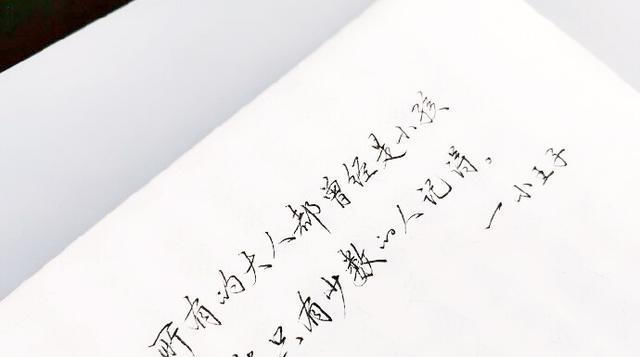 所有的大人都曾经是小孩
只有少数的人记得。
一小王子